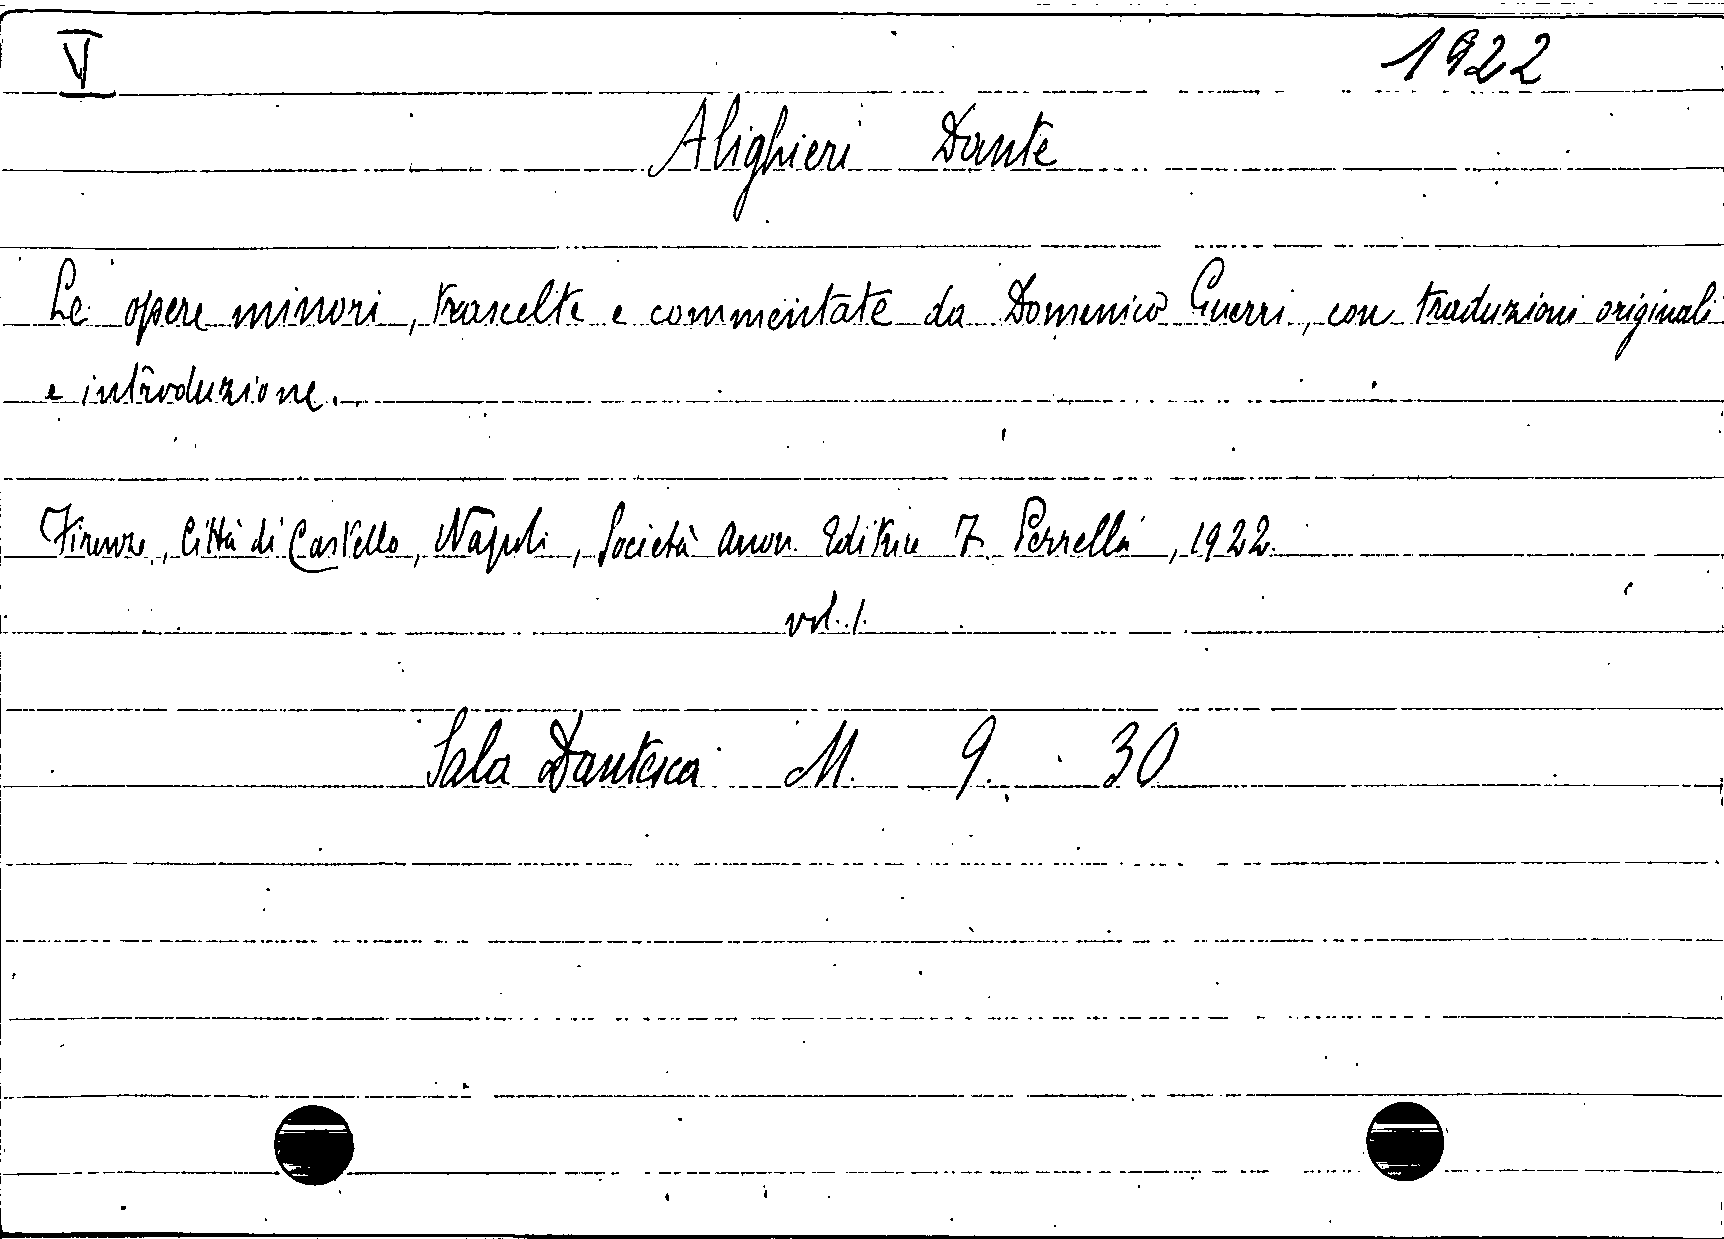 V 1922
Alighieri Dante
Le opere minori, trascelte e commentate da Domenico Guerri, con traduzioni originali
e introduzione.
Firenze, Città di Castello, Napoli, Società Anon. Editrice F. Perrella, 1922.
vol. 1.
Sala Dantesca M. 9. 30